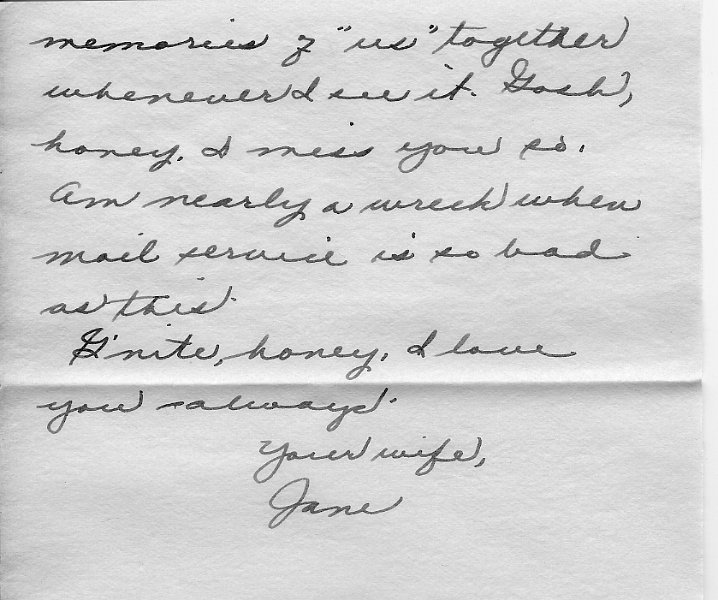 memories of "us" together
whenever I see it. Gosh,
honey, I miss you so.
Am nearly a wreck when
mail service is so bad
as this.
G'nite, honey, I love
you always.
Your wife,
Jane